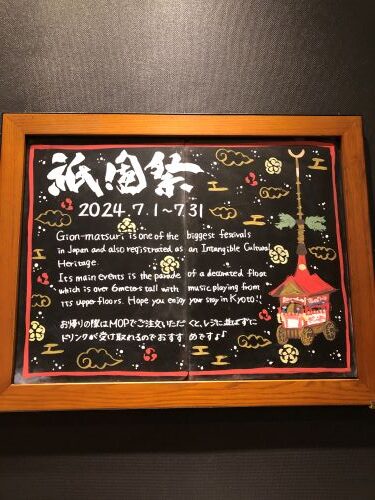 祇園祭
2024 7.1~7.31
Gion-matsuri is one of the biggest festivals
in Japan and also registrated as an Intangible Cultural
Heritage.
Its main events is the parade of a decorated float
which is over 6meters tall with music playing from
its upper floors. Hope you enjoy your stay in Kyoto!!
お帰りの際はMOPでご注文いただくと、レジに並ばずに
ドリンクが受け取れるのでおすすめですよ♪